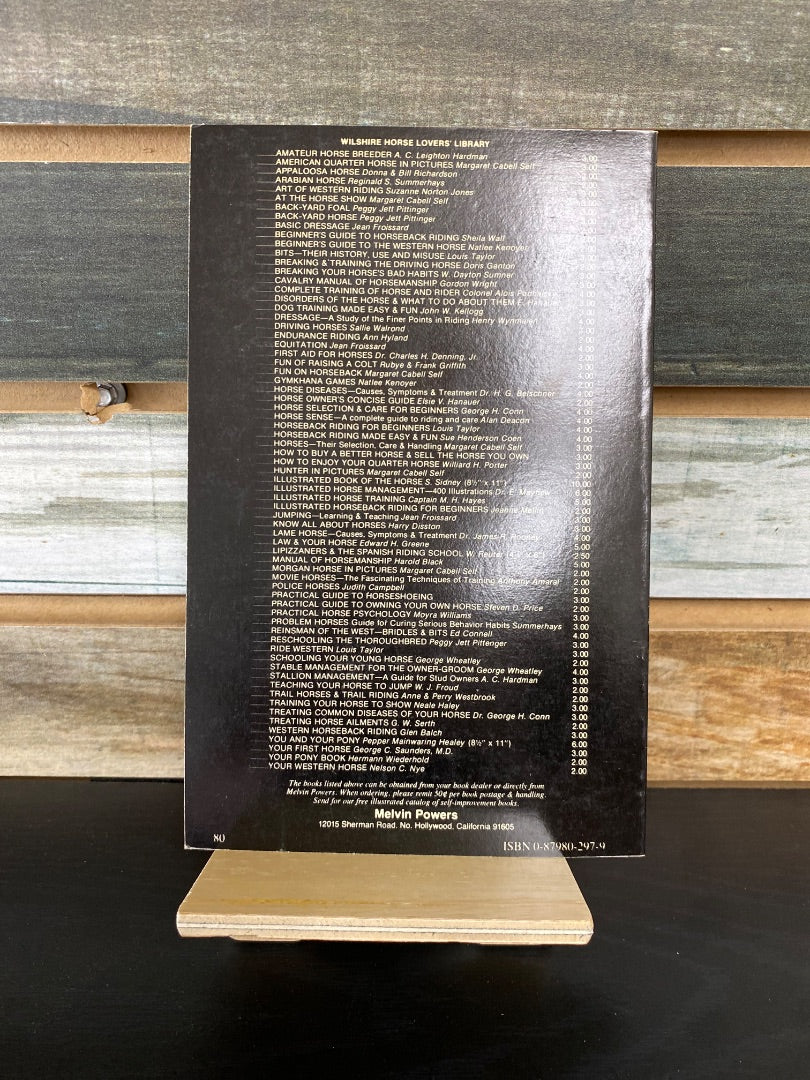 WILSHIRE HORSE LOVERS' LIBRARY
AMATEUR HORSE BREEDER A. C. Leighton Hardman
AMERICAN QUARTER HORSE IN PICTURES Margaret Cabell Self
APPALOOSA HORSE Donna & Bill Richardson
ARABIAN HORSE Reginald S. Summerhays
ART OF WESTERN RIDING Suzanne Norton Jones
AT THE HORSE SHOW Margaret Cabell Self
BACK-YARD FOAL Peggy Jett Pittinger
BACK-YARD HORSE Peggy Jett Pittinger
BASIC DRESSAGE Jean Froissard
BEGINNER'S GUIDE TO HORSEBACK RIDING Sheila Wall
BEGINNER'S GUIDE TO THE WESTERN HORSE Natlee Kenoyer
BITS—THEIR HISTORY, USE AND MISUSE Louis Taylor
BREAKING & TRAINING THE DRIVING HORSE Doris Ganton
BREAKING YOUR HORSE'S BAD HABITS W. Dayton Sumner
CAVALRY MANUAL OF HORSEMANSHIP Gordon Wright
COMPLETE TRAINING OF HORSE AND RIDER Colonel Alois
DISORDERS OF THE HORSE & WHAT TO DO ABOUT THEM E.
DOG TRAINING MADE EASY & FUN John W. Kellogg
DRESSAGE—A Study of the Finer Points in Riding Henry Wynmalen
DRIVING HORSES Sallie Walrond
ENDURANCE RIDING Ann Hyland
EQUITATION Jean Froissard
FIRST AID FOR HORSES Dr. Charles H. Denning, Jr.
FUN OF RAISING A COLT Rubye & Frank Griffith
FUN ON HORSEBACK Margaret Cabell Self
GYMKHANA GAMES Natlee Kenoyer
HORSE DISEASES—Causes, Symptoms & Treatment Dr. H. G. Belschner 4.00
HORSE OWNER'S CONCISE GUIDE Elsie V. Hanauer
HORSE SELECTION & CARE FOR BEGINNERS George H. Conn 4.00
HORSE SENSE—A complete guide to riding and care Alan Deacon 4.00
HORSEBACK RIDING FOR BEGINNERS Louis Taylor 4.00
HORSEBACK RIDING MADE EASY & FUN Sue Henderson Coen 4.00
HORSES—Their Selection, Care & Handling Margaret Cabell Self 3.00
HOW TO BUY A BETTER HORSE & SELL THE HORSE YOU OWN 3.00
HOW TO ENJOY YOUR QUARTER HORSE Williard H. Porter 3.00
HUNTER IN PICTURES Margaret Cabell Self
ILLUSTRATED BOOK OF THE HORSE S. Sidney (8½" x 11") 10.00
ILLUSTRATED HORSE MANAGEMENT—400 Illustrations Dr. E. Mayhew 6.00
ILLUSTRATED HORSE TRAINING Captain M. H. Hayes 5.00
ILLUSTRATED HORSEBACK RIDING FOR BEGINNERS Jeanne Mellin
JUMPING—Learning & Teaching Jean Froissard
KNOW ALL ABOUT HORSES Harry Disston 3.00
LAME HORSE—Causes, Symptoms & Treatment Dr. James R. Rooney 4.00
LAW & YOUR HORSE Edward H. Greene 5.00
LIPIZZANERS & THE SPANISH RIDING SCHOOL W. Reuter 2.50
MANUAL OF HORSEMANSHIP Harold Black 5.00
MORGAN HORSE IN PICTURES Margaret Cabell Self 2.00
MOVIE HORSES—The Fascinating Techniques of Training Anthony Amaral 2.00
POLICE HORSES Judith Campbell 2.00
PRACTICAL GUIDE TO HORSESHOEING 3.00
PRACTICAL GUIDE TO OWNING YOUR OWN HORSE Steven D. Price 2.00
PRACTICAL HORSE PSYCHOLOGY Moyra Williams 3.00
PROBLEM HORSES Guide for Curing Serious Behavior Habits Summerhays 3.00
REINSMAN OF THE WEST—BRIDLES & BITS Ed Connell 4.00
RESCHOOLING THE THOROUGHBRED Peggy Jett Pittenger 3.00
RIDE WESTERN Louis Taylor 3.00
SCHOOLING YOUR YOUNG HORSE George Wheatley 2.00
STABLE MANAGEMENT FOR THE OWNER-GROOM George Wheatley 4.00
STALLION MANAGEMENT—A Guide for Stud Owners A. C. Hardman 3.00
TEACHING YOUR HORSE TO JUMP W. J. Froud 2.00
TRAIL HORSES & TRAIL RIDING Anne & Perry Westbrook 2.00
TRAINING YOUR HORSE TO SHOW Neale Haley 3.00
TREATING COMMON DISEASES OF YOUR HORSE Dr. George H. Conn 3.00
TREATING HORSE AILMENTS G. W. Serth 2.00
WESTERN HORSEBACK RIDING Glen Balch 3.00
YOU AND YOUR PONY Pepper Mainwaring Healey (8½" x 11") 6.00
YOUR FIRST HORSE George C. Saunders, M.D. 3.00
YOUR PONY BOOK Hermann Wiederhold 2.00
YOUR WESTERN HORSE Nelson C. Nye 2.00
The books listed above can be obtained from your book dealer or directly from
Melvin Powers. When ordering, please remit 50¢ per book postage & handling.
Send for our free illustrated catalog of self-improvement books.
Melvin Powers
12015 Sherman Road, No. Hollywood, California 91605
80
ISBN 0-87980-297-9